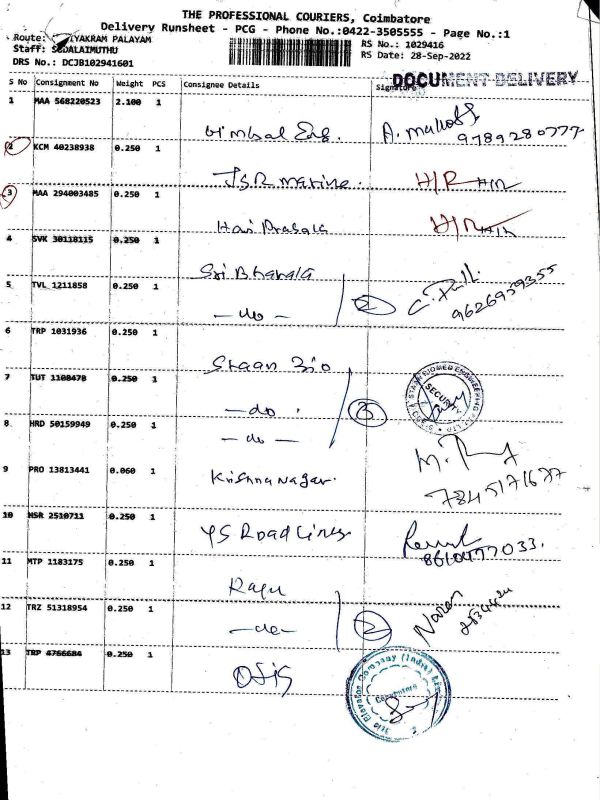 THE PROFESSIONAL COURIERS, Coimbatore
Delivery Runsheet - PCG - Phone No.:0422-3505555 - Page No.:1
Route: IYAKRAM PALAYAM
Staff: SUDALAIMUTHU
DRS No.: DCJB102941601
RS No.: 1029416
RS Date: 28-Sep-2022
DOCUMENT DELIVERY
S No Consignment No Weight PCS Consignee Details Signature
1 MAA 568220523 2.100 1 A. 9789280777
2 KCM 40238938 0.250 1 J.S.R marine. H/R
3 MAA 294003485 0.250 1 H/R
4 SVK 30118115 0.250 1 Sri Bharala
5 TVL 1211858 0.250 1 - do - 2 9626959355
6 TRP 1031936 0.250 1 Staan Bio
7 TUT 1108478 0.250 1 - do. 3 SECURITY
8 HRD 50159949 0.250 1 - do -
9 PRO 13813441 0.060 1 Krishna nagar. 7845171677
10 MSR 2510711 0.250 1 YS Road Lines 8610477033.
11 MTP 1183175 0.250 1 Raju
12 TRZ 51318954 0.250 1 - do - 2
13 TRP 4766684 0.250 1 Otis Otis Elevator Company (India) Ltd. Coimbatore